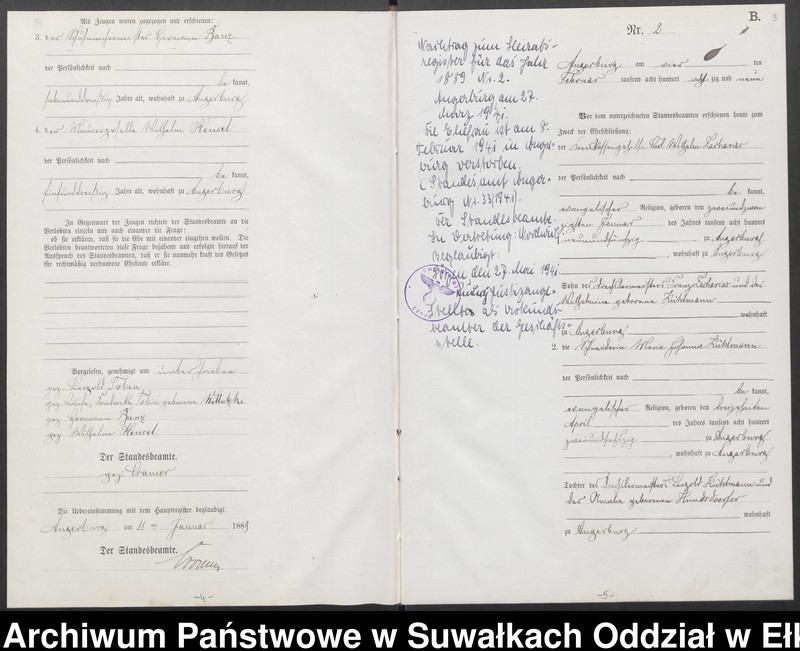 Als Zeugen waren zugezogen und erschienen:
3. der Schuhmachermeister Hermann Banz
der Persönlichkeit nach
be kannt,
siebenunddreißig Jahre alt, wohnhaft zu Angerburg
4. der Maurergeselle Wilhelm Hensel
der Persönlichkeit nach
be kannt,
fünfunddreißig Jahre alt, wohnhaft zu Angerburg
In Gegenwart der Zeugen richtete der Standesbeamte an die
Verlobten einzeln und nach einander die Frage:
ob sie erklären, daß sie die Ehe mit einander eingehen wollen. Die
Verlobten beantworteten diese Frage bejahend und erfolgte hierauf der
Ausspruch des Standesbeamten, daß er sie nunmehr kraft des Gesetzes
für rechtmäßig verbundene Eheleute erkläre.
Vorgelesen, genehmigt und unterschrieben
gez. Leopold Toben
gez. Friederike Toben geborene
gez. Hermann Banz
gez. Wilhelm Hensel
Der Standesbeamte.
gez. Cramer
Die Uebereinstimmung mit dem Hauptregister beglaubigt.
Angerburg am 11 ten Januar 1889
Der Standesbeamte.
Cramer
-4-
B.
3
Nr. 2
Angerburg am vier ten
Februar tausend acht hundert acht zig und neun
Vor dem unterzeichneten Standesbeamten erschienen heute zum
Zweck der Eheschließung:
der Carl Wilhelm Zacharias
der Persönlichkeit nach
be kannt,
evangelischer Religion, geboren den zweiundzwan
zigsten Januar des Jahres tausend acht hundert
neunundfünfzig zu Angerburg
, wohnhaft zu Angerburg
Sohn des Tischlermeisters Franz Zacharias und der
Wilhelmine geborene Kuhlmann
wohnhaft
zu Angerburg
2. die Schneiderin Maria Johanna Kuhlmann
der Persönlichkeit nach
be kannt,
evangelischer Religion, geboren den dreizehnten
April des Jahres tausend acht hundert
zweiundsechzig zu Angerburg
, wohnhaft zu Angerburg
Tochter des Tischlermeisters Leopold Kuhlmann und
der Amalie geborenen Hundsdoerfer
wohnhaft
zu Angerburg
Nachtrag zum Heirats-
register für das Jahr
1889 Nr. 2.
Angerburg am 27.
März 1941.
Die Ehefrau ist am 8.
Februar 1941 in Anger-
burg verstorben.
(Standesamt Anger-
burg Nr. 33/1941).
Der Standesbeamte
In Vertretung:
Beglaubigt:
den 27. Mai 1941
Justizange-
stellter als Urkunds-
beamter der Geschäfts-
stelle.
-5-
Archiwum Państwowe w Suwałkach Oddział w Ełk